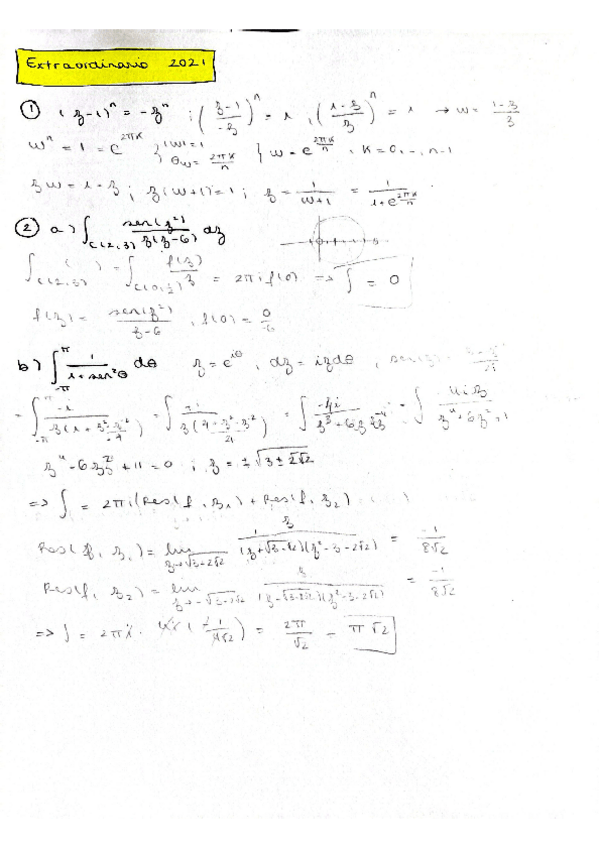 Extraordinario 2021
① (z-1)^n = -z^n ; ((z-1)/-z)^n = 1 , ((1-z)/z)^n = 1 → w = (1-z)/z
w^n = 1 = e^{2πk} { |w|=1 θ_w = 2πk/n } w = e^{2πk/n} , k=0,-,n-1
zw = 1-z ; z(w+1)=1 ; z = 1/(w+1) = 1/(1+e^{2πk/n})
② a) ∫_{C(2,3)} sen(z²)/(z(z-6)) dz
∫_{C(2,3)} ( ) = ∫ f(z)/z = 2πi f(0) => ∫ = 0
f(z) = sen(z²)/(z-6) , f(0) = 0/-6
b) ∫_{-π}^{π} 1/(1+sen²θ) dθ z = e^{iθ} , dz = izdθ ,
z⁴ - 6z² + 1 = 0 ; z = ±√(3±2√2)
=> ∫ = 2πi(Res(f, z₁) + Res(f, z₂)
Res(f, z₁) = lim z/((z+√3-2√2)(z²-3-2√2)) = -1/(8√2)
Res(f, z₂) = lim z/((z-√3-2√2)(z²-3-2√2)) = -1/(8√2)
=> ∫ = 2πi · 4i(-1/(4√2)) = 2π/√2 = π√2